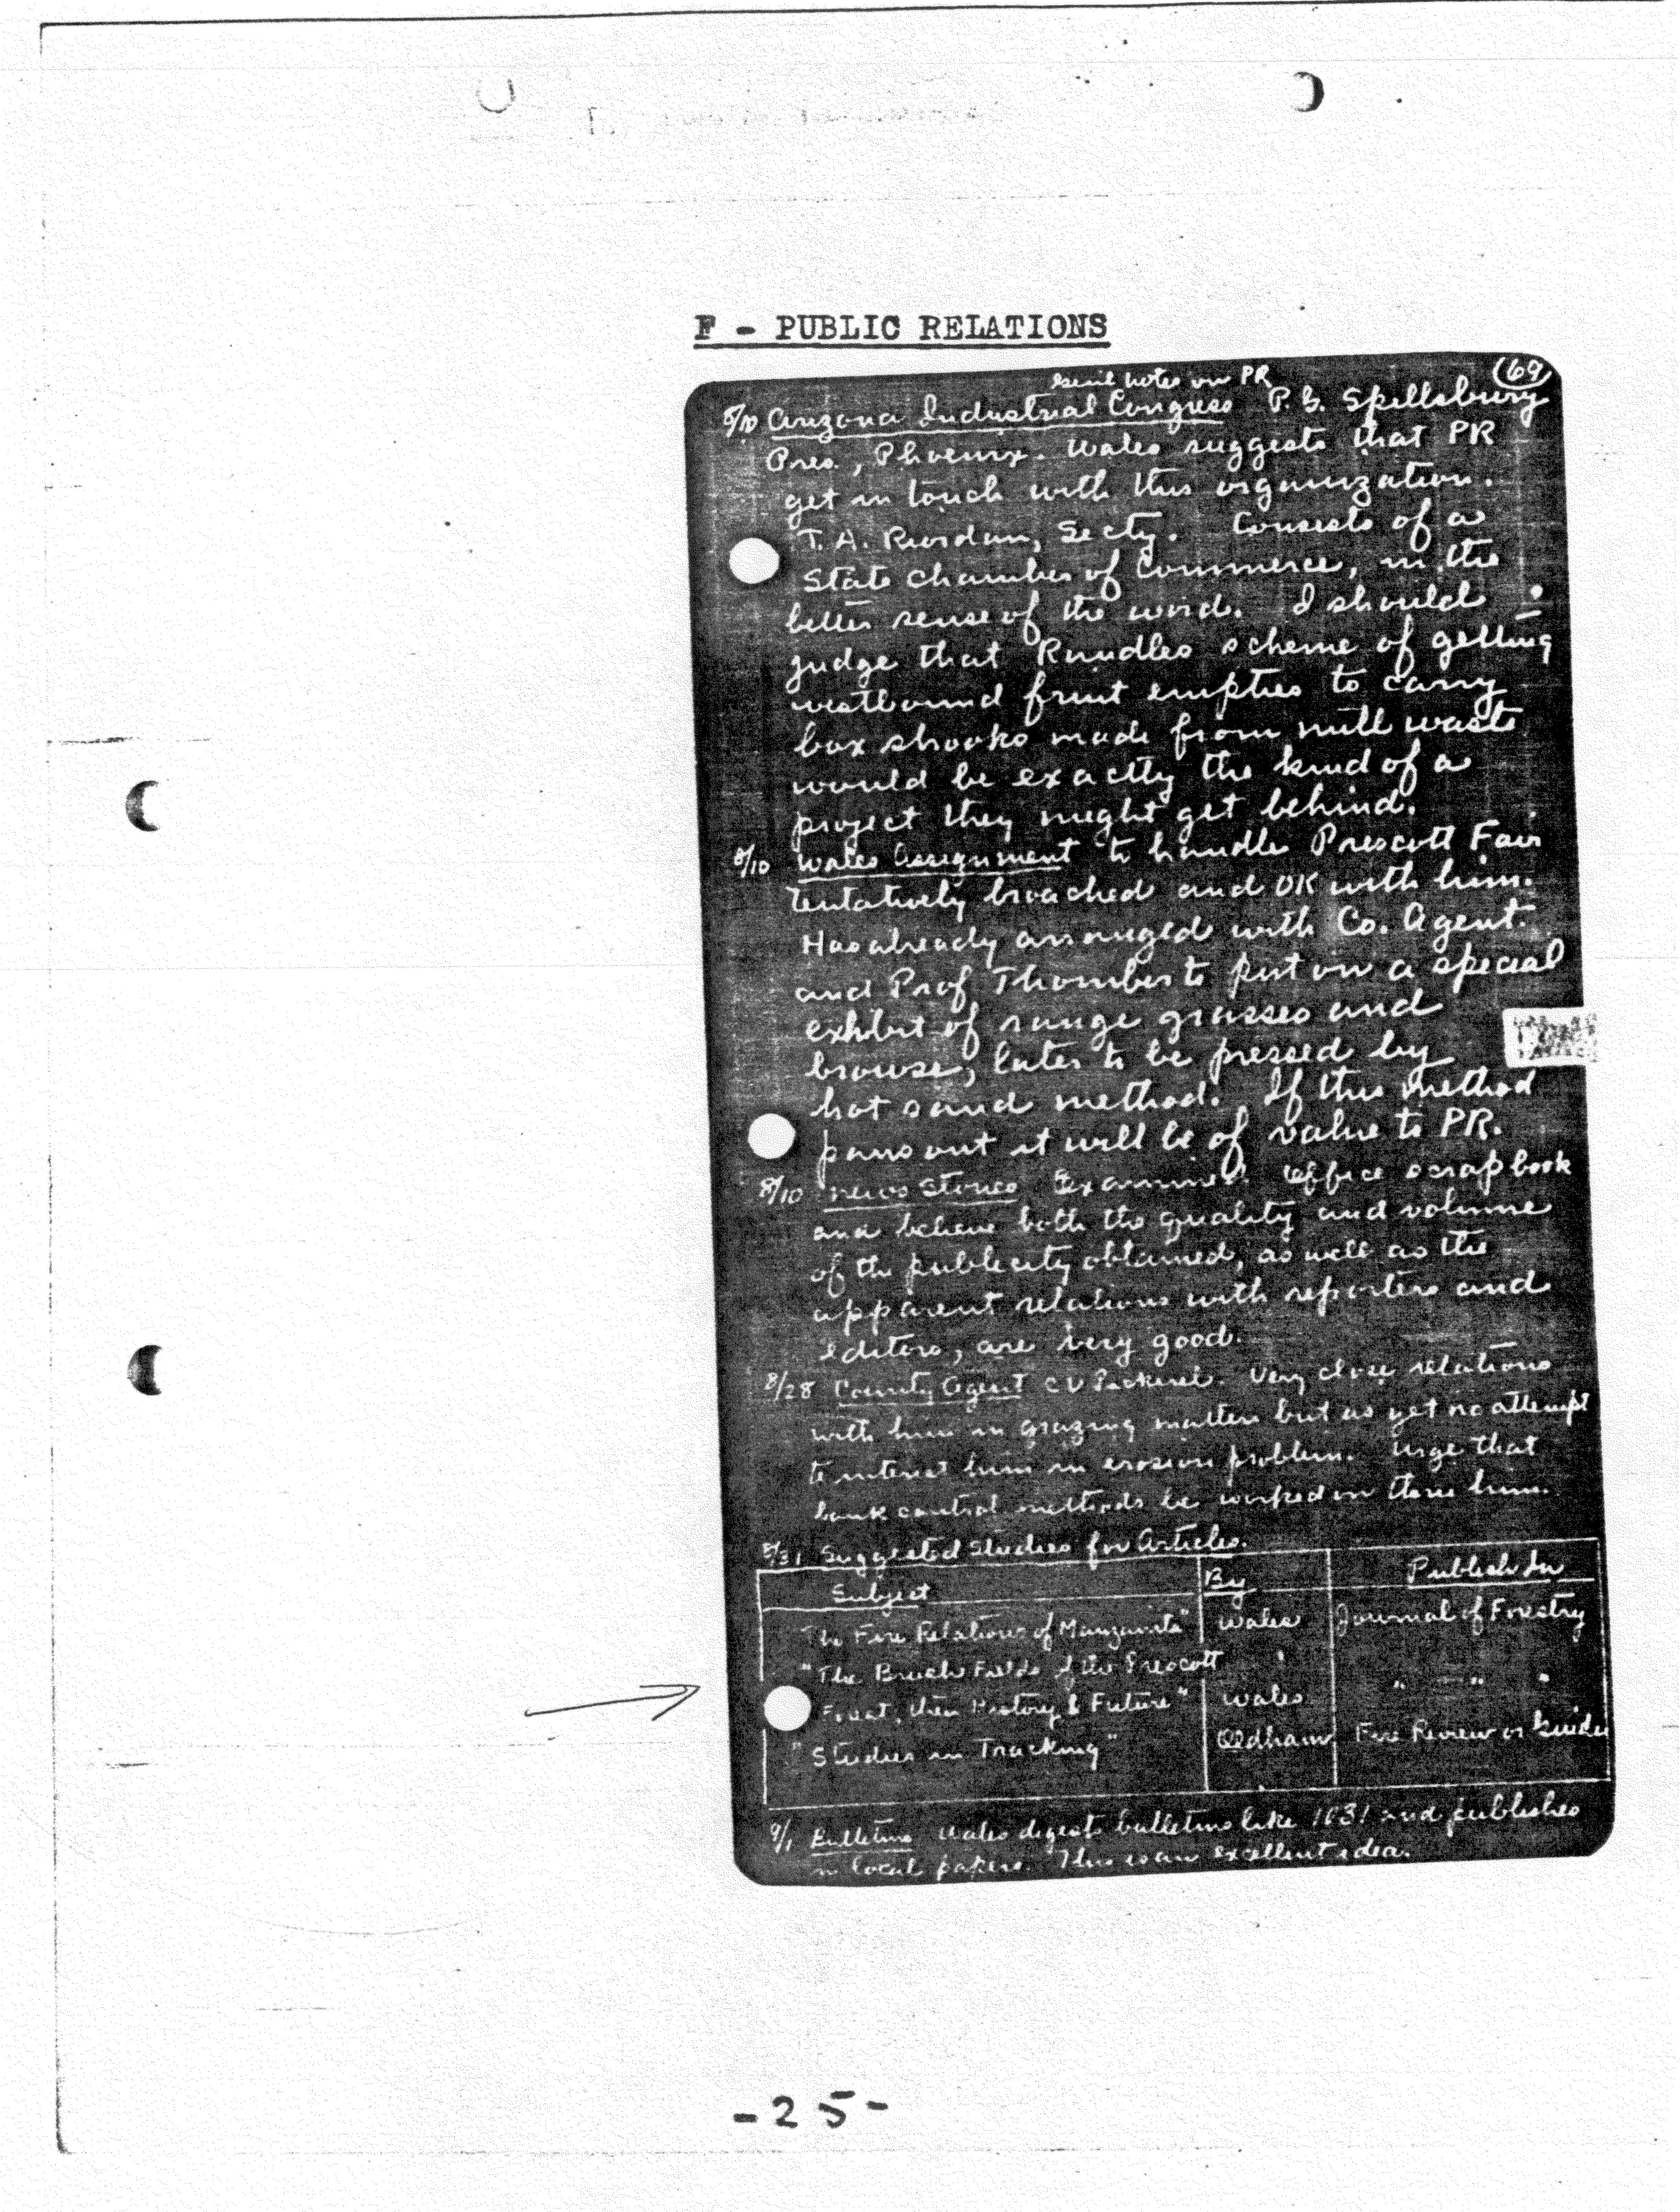 F - PUBLIC RELATIONS
Genl notes on PR
(69)
8/10 Arizona Industrial Congress P. G. Spillsbury
Pres., Phoenix. Wales suggests that PR
get in touch with this organization.
T. A. Riordan, Secty. Consists of a
State chamber of Commerce, in the
better sense of the word. I should
judge that Rundles scheme of getting
westbound fruit empties to carry
box shooks made from mill waste
would be exactly the kind of a
project they might get behind.
8/10 Wales Assignment to handle Prescott Fair
tentatively broached and OK with him.
Has already arranged with Co. Agent
and Prof Thornber to put on a special
exhibit of range grasses and
browse, later to be pressed by
hot sand method. If this method
pans out it will be of value to PR.
8/10 News Stories Examined office scrapbook
and believe both the quality and volume
of the publicity obtained, as well as the
apparent relations with reporters and
editors, are very good.
8/28 County Agent CV Very close relations
with him in grazing matters but as yet no attempt
to interest him in erosion problem. Urge that
bank control methods be worked on thru him.
8/31 Suggested Studies for Articles.
Subject By Publish In
"The Fire Relations of Manzanita" Wales Journal of Forestry
"The Brush Fields of the Prescott
Forest, their History & Future" Wales " " "
"Studies in Tracking" Oldham Fire Review or Guide
9/1 Bulletins Wales digests bulletins like 1031 and publishes
in local papers. This is an excellent idea.
-25-